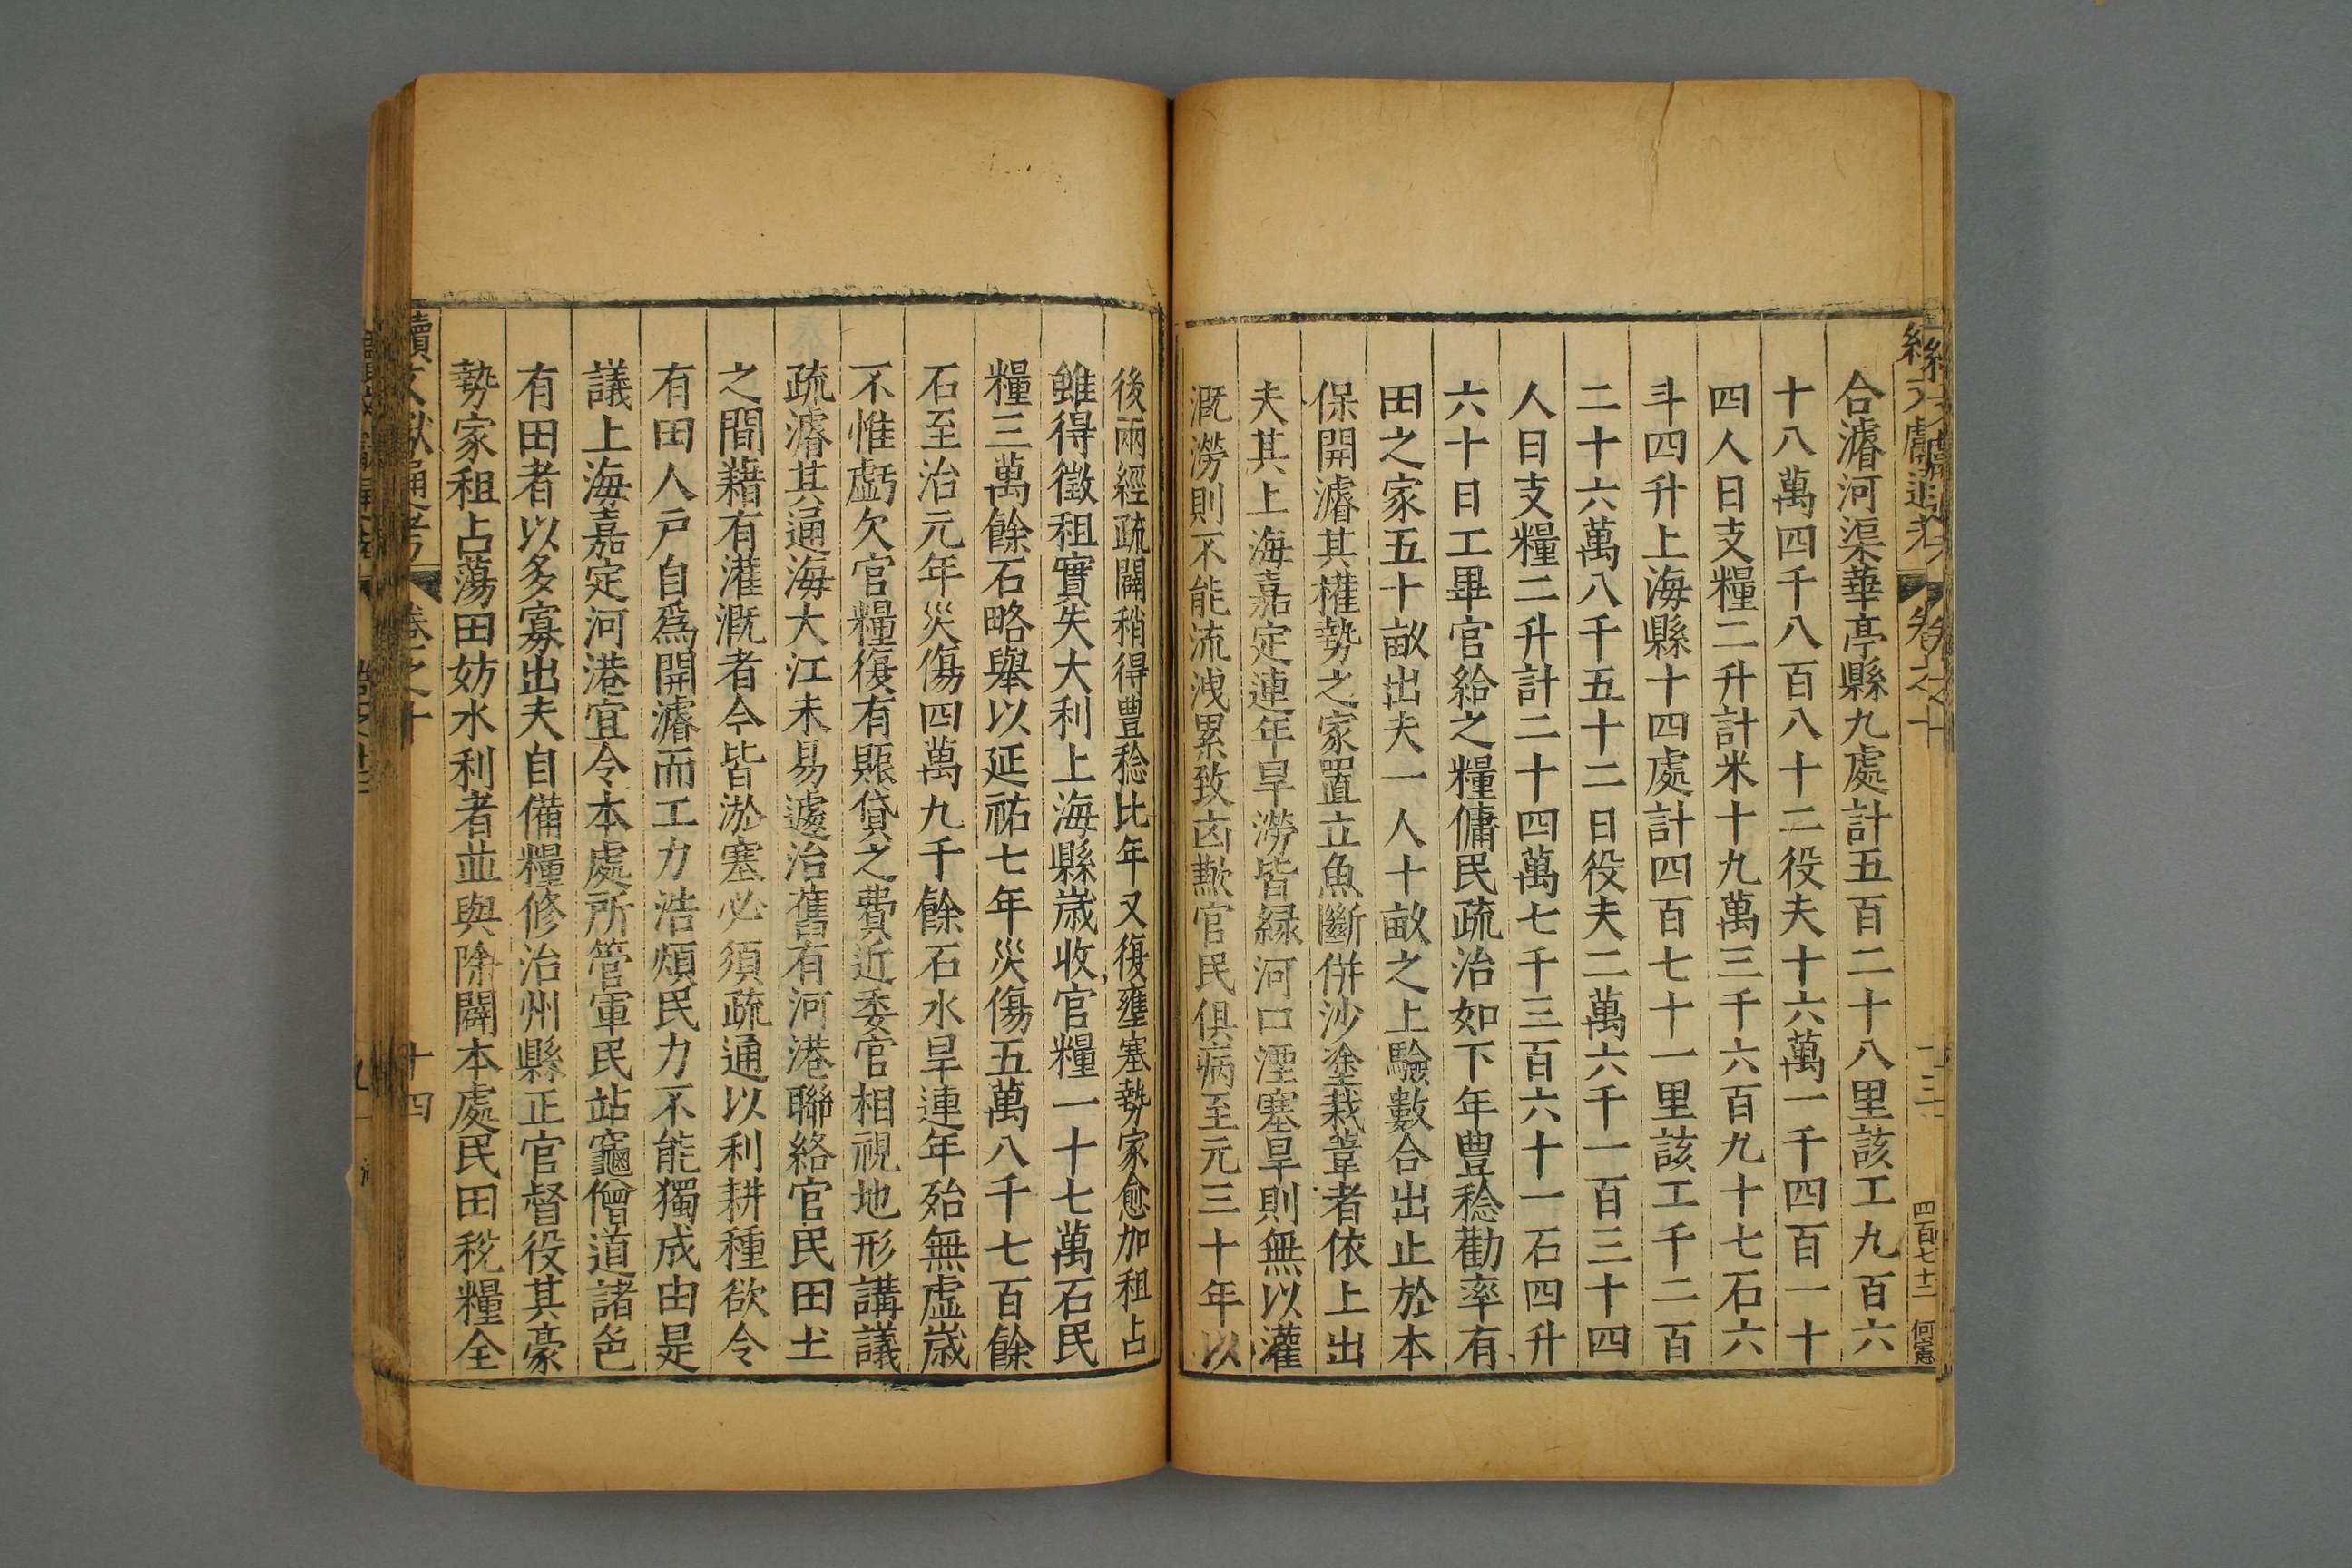 合濬河渠華亭縣九處計五百二十八里該工九百六
十八萬四千八百八十二役夫十六萬一千四百一十
四人日支糧二升計米十九萬三千六百九十七石六
斗四升上海縣十四處計四百七十一里該工千二百
二十六萬八千五十二日役夫二萬六千一百三十四
人日支糧二升計二十四萬七千三百六十一石四升
六十日工畢官給之糧傭民疏治如下年豊稔勸率有
田之家五十畝出夫一人十畝之上驗數合出止於本
保開濬其權勢之家置立魚斷併沙塗栽葦者依上出
夫其上海嘉定連年旱澇皆緑河口湮塞旱則無以灌
溉澇則不能流洩累致凶歉官民俱病至元三十年以
後兩經疏闢稍得豊稔比年又復壅塞勢家愈加租占
雖得徵租實失大利上海縣歲收官糧一十七萬石民
糧三萬餘石略舉以延祐七年災傷五萬八千七百餘
石至治元年災傷四萬九千餘石水旱連年殆無虛歲
不惟虧欠官糧復有賑貸之費近委官相視地形講議
疏濬其通海大江未易遽治舊有河港聯絡官民田土
之間藉有灌溉者今皆淤塞必須疏通以利耕種欲令
有田人戶自爲開濬而工力浩煩民力不能獨成由是
議上海嘉定河港宜令本處所管軍民站竈僧道諸色
有田者以多寡出夫自備糧修治州縣正官督役其豪
勢家租占蕩田妨水利者並與除闢本處民田稅糧全
續文獻通考 卷之十 十四